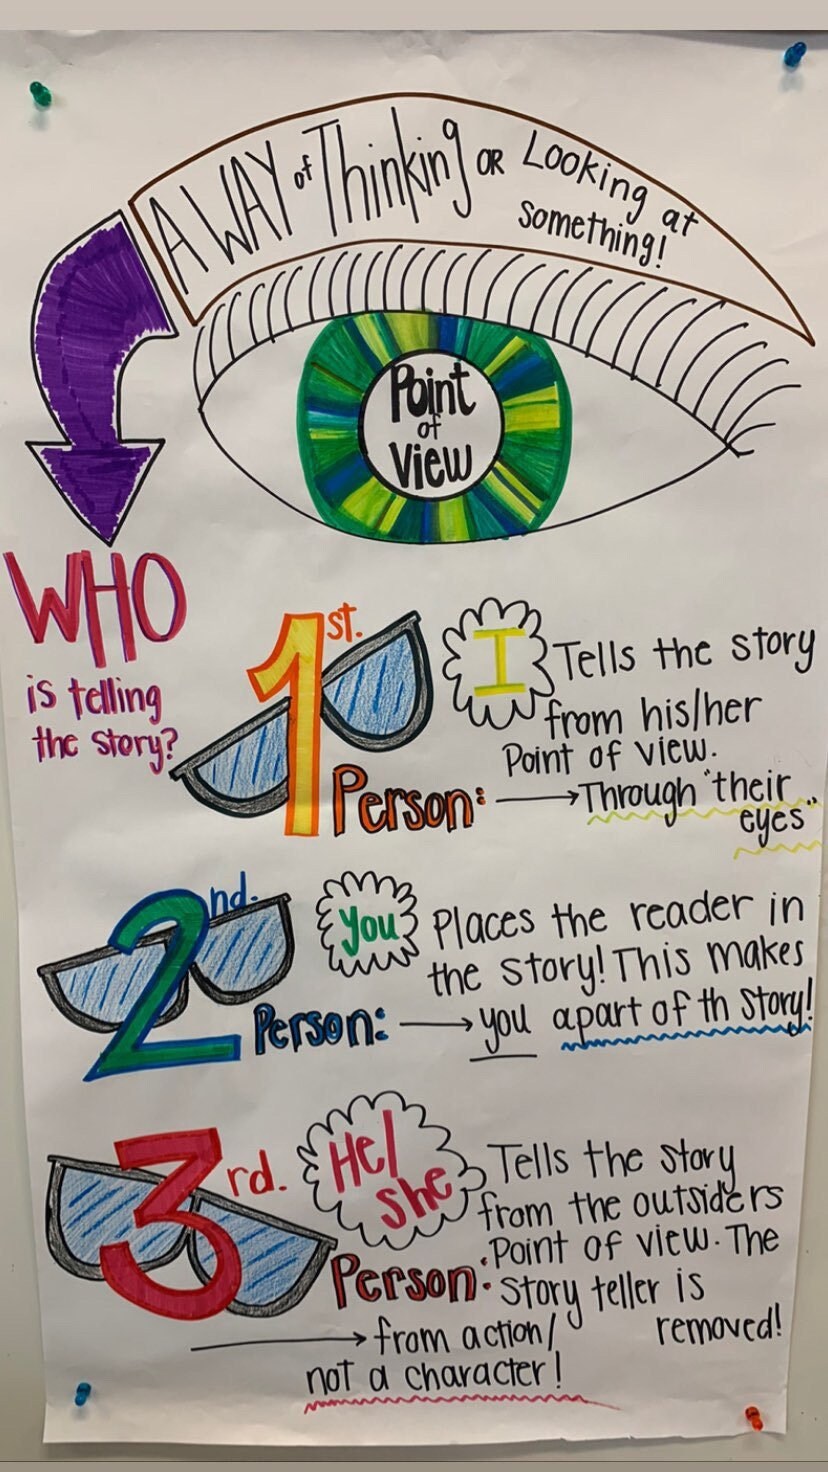 A WAY of Thinking OR Looking at
something!
Point
of
View
WHO
is telling
the story?
1st.
Person:
I
Tells the story
from his/her
Point of view.
→Through "their
eyes"
2nd.
Person:
you
Places the reader in
the story! This makes
→ you apart of th Story!
3rd.
Person:
He/
she
Tells the story
from the outsiders
Point of view. The
Story teller is
removed!
→ from action/
not a character!